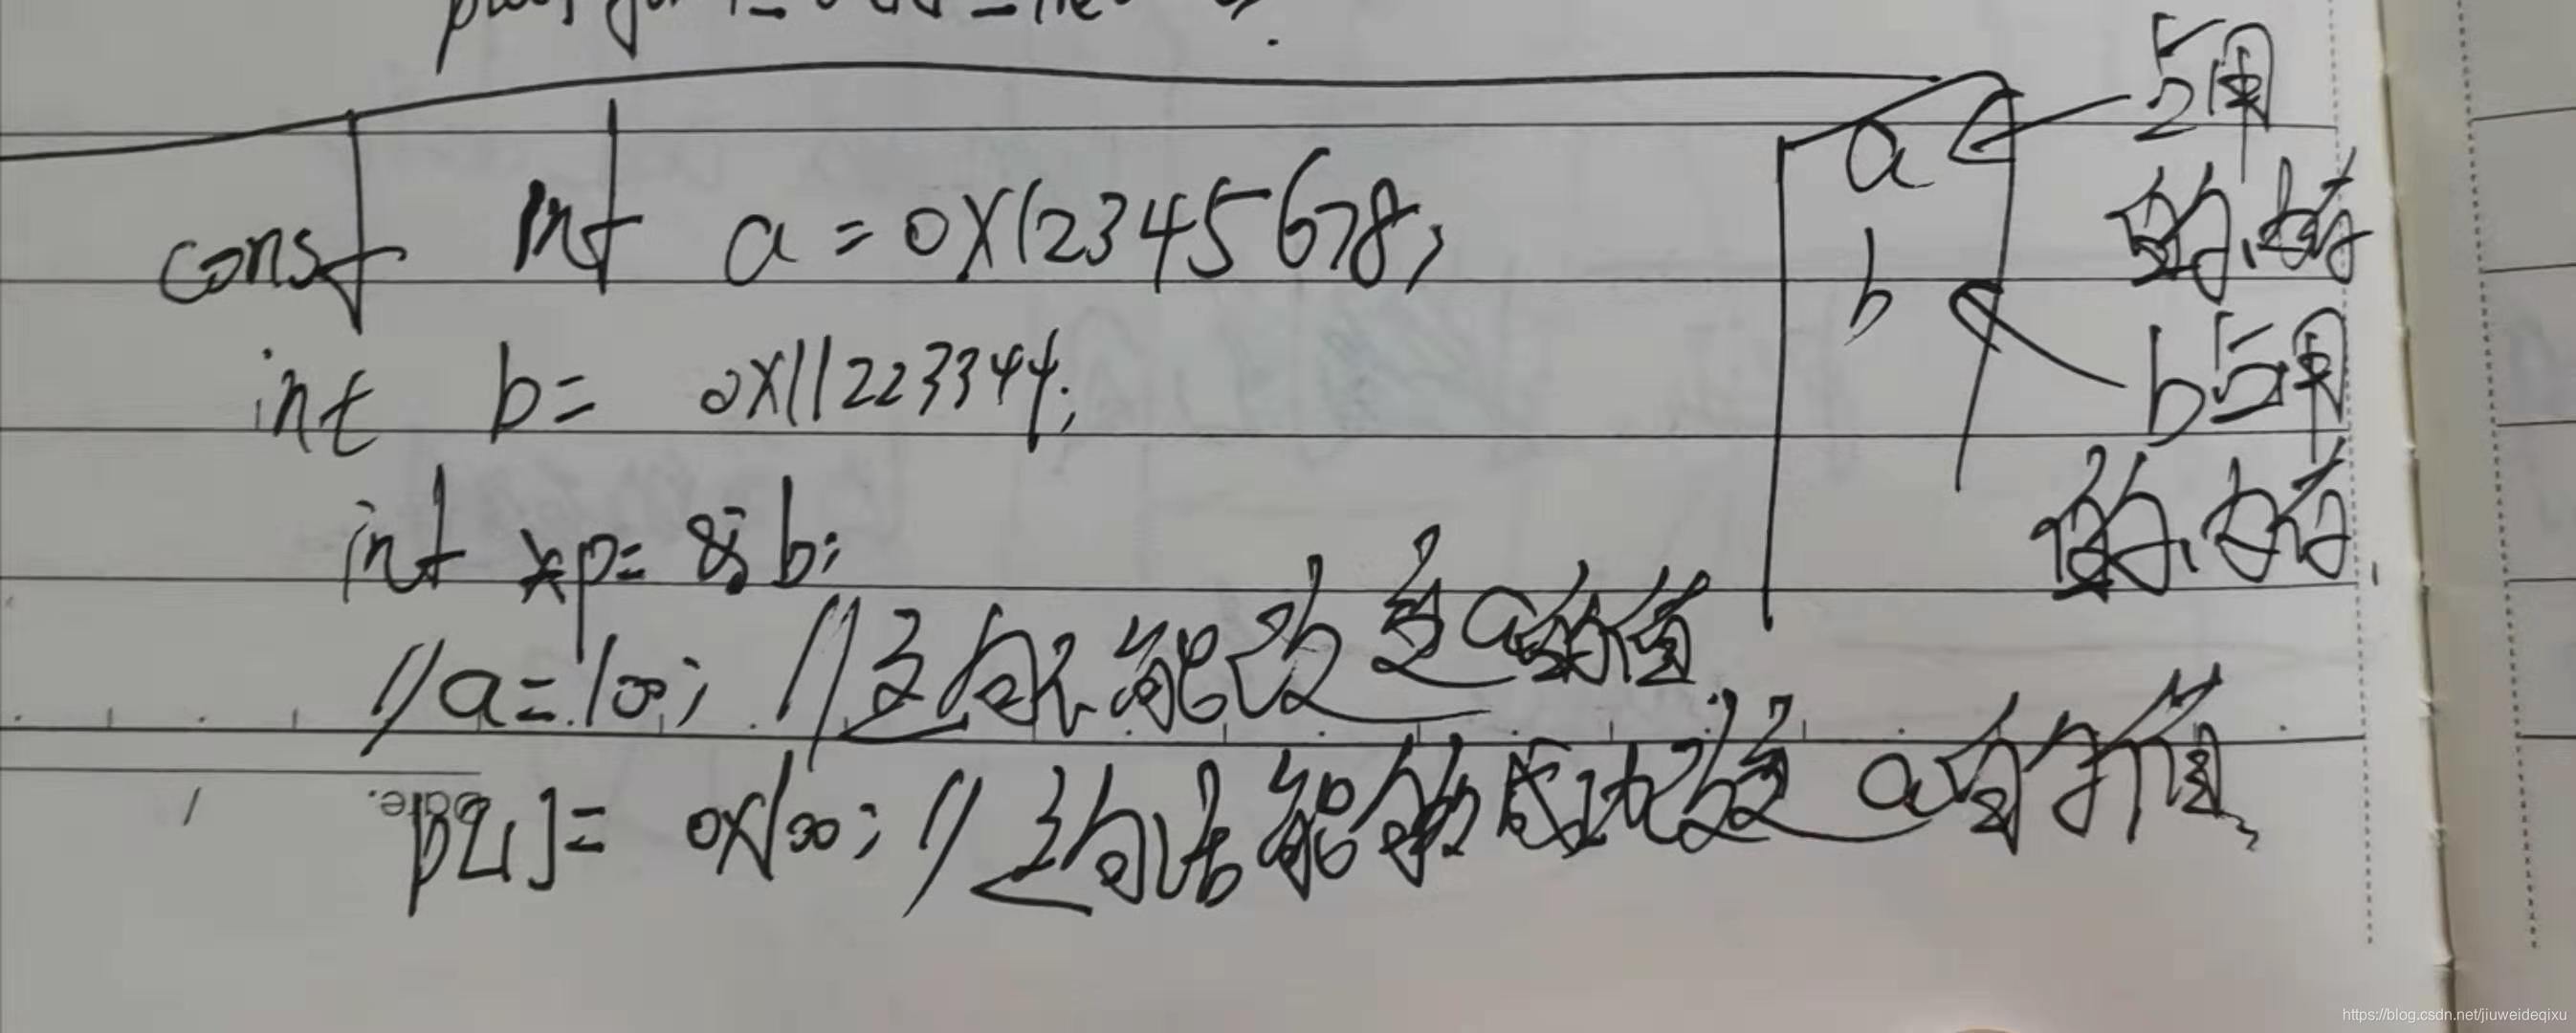 const int a = 0X12345678;
int b = 0X11223344;
int *p = &b;
//a = 100; //这句不能改变a的值
p[1] = 0x100; //这句话能够成功改变a的值
a
b
占用
的内存
b占用
的内存
Date.
https://blog.csdn.net/jiuweideqixu